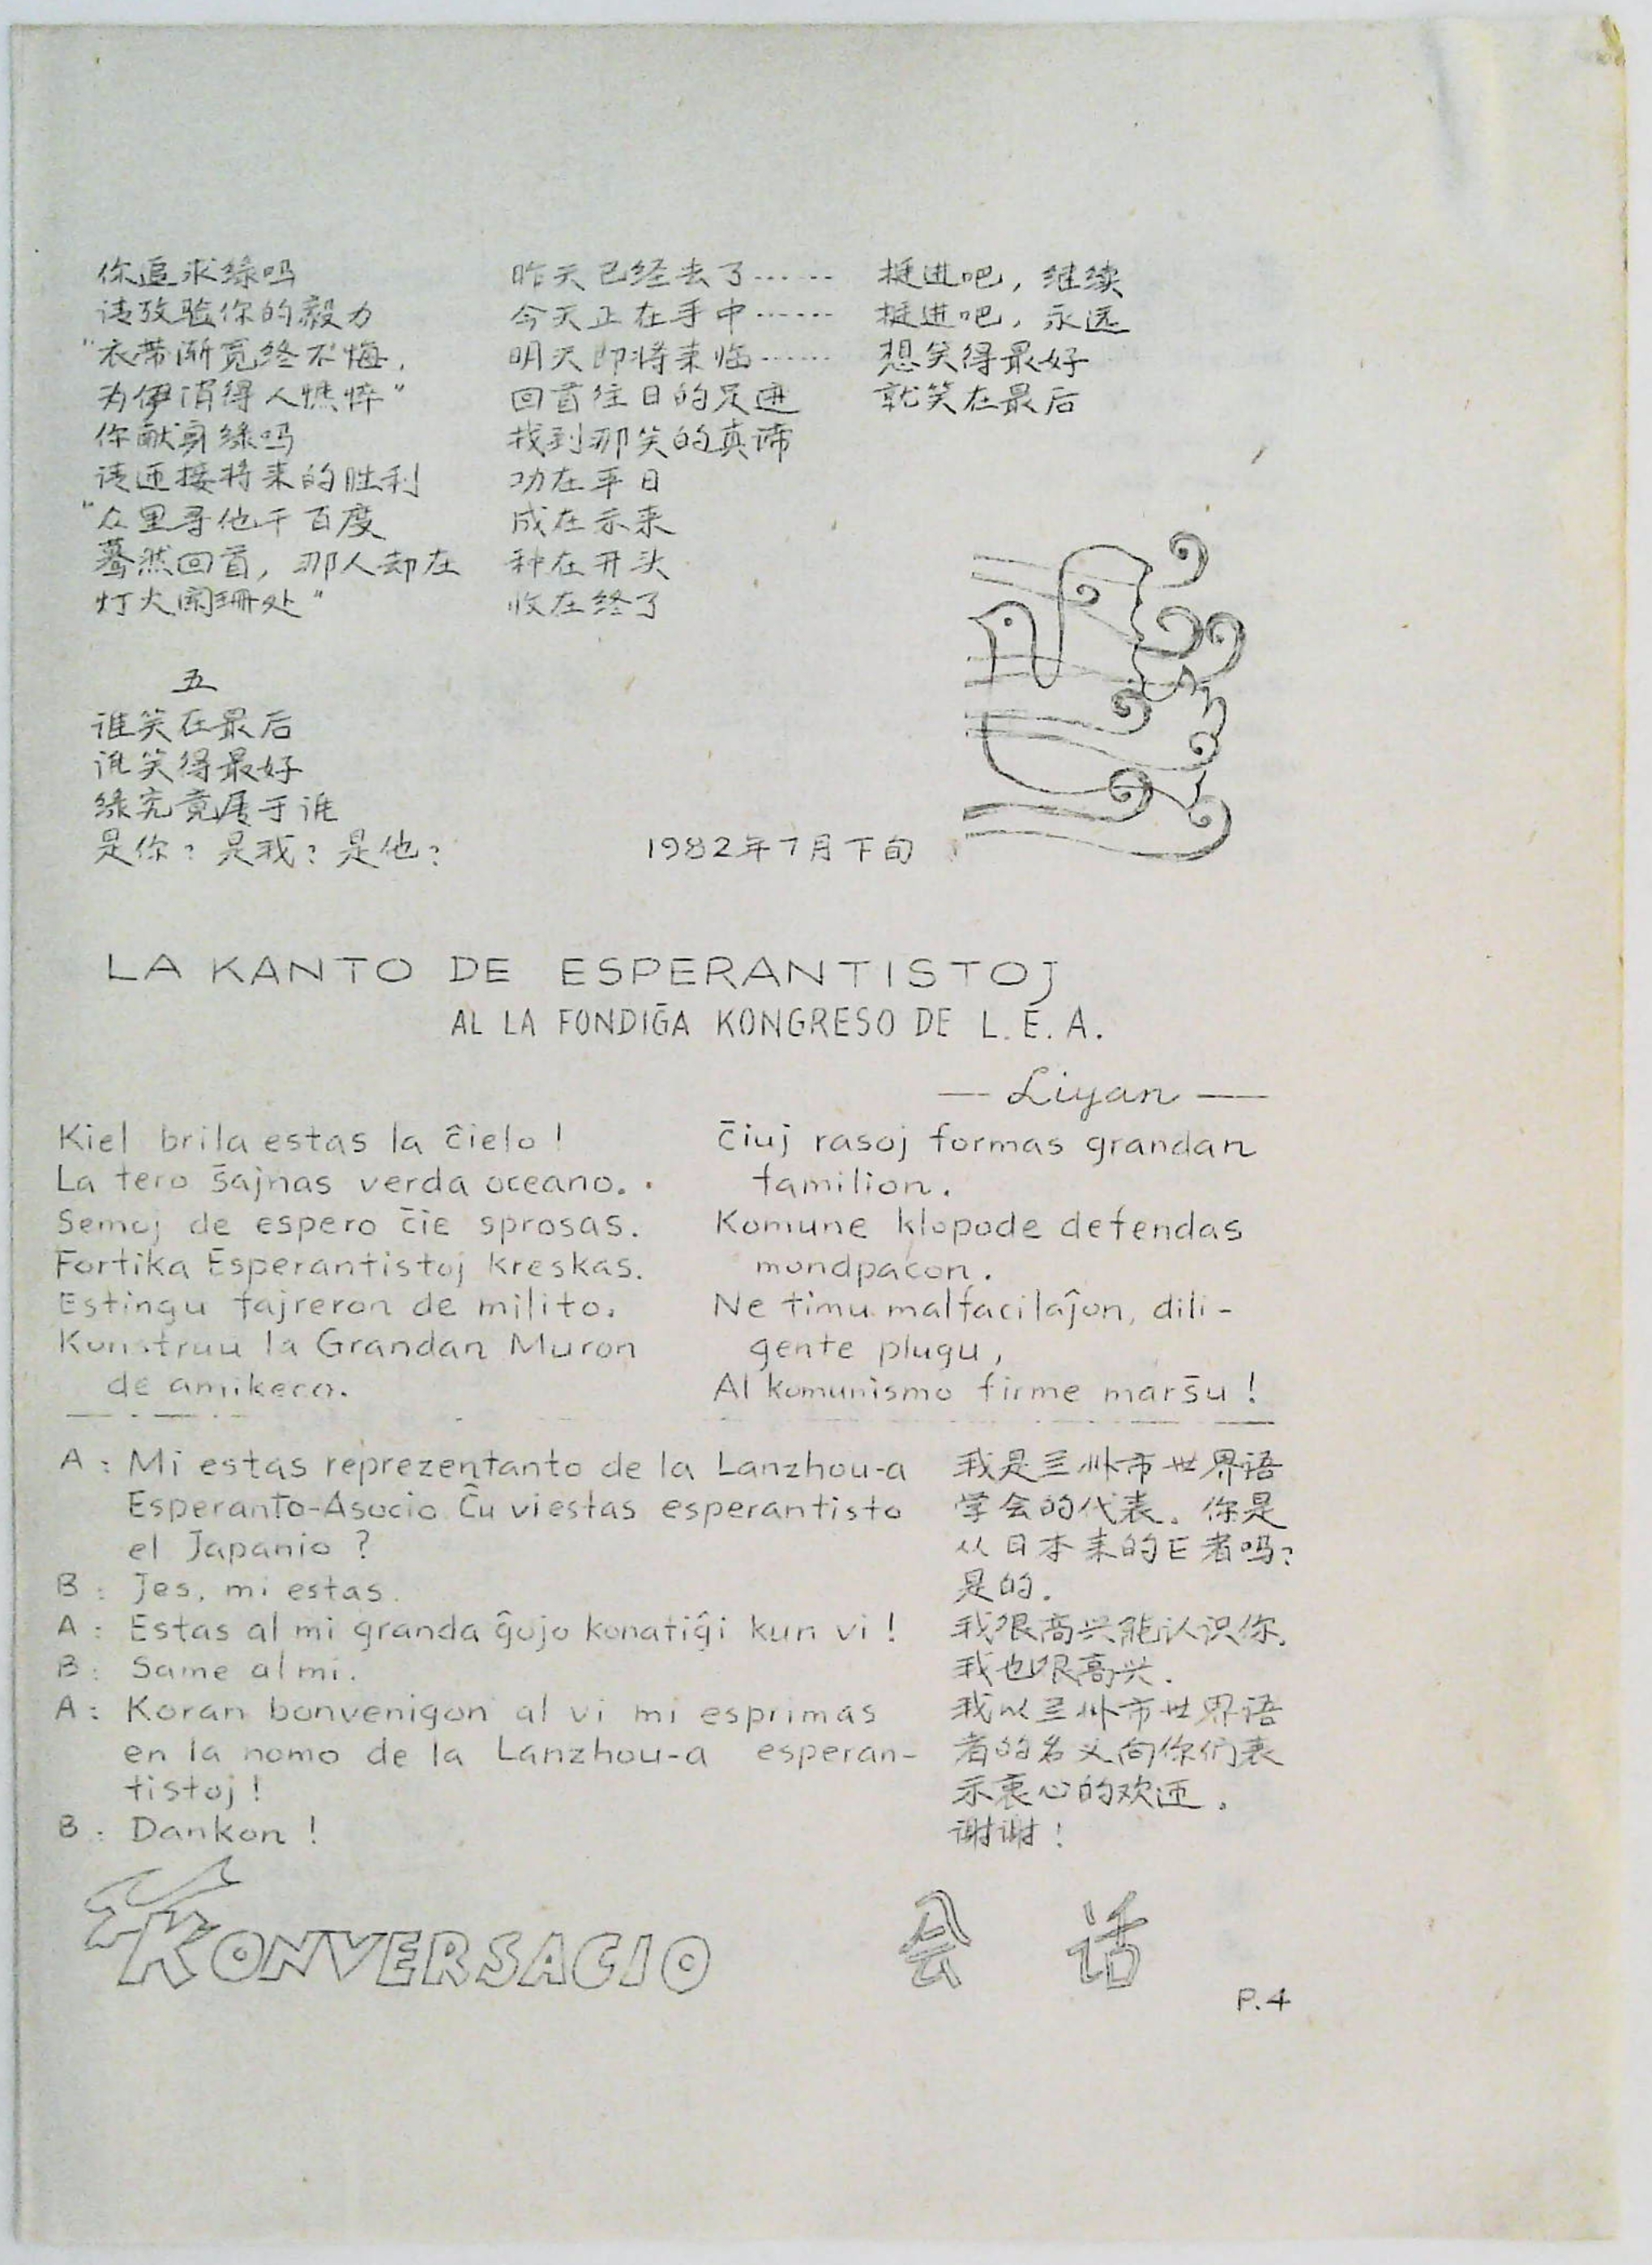 你追求绿吗
请孜验你的毅力
"衣带渐宽终不悔,
为伊消得人憔悴"
你献身绿吗
请迊接将来的胜利
"众里寻他千百度
蓦然回首, 那人却在
灯火阑珊处"
五
谁笑在最后
谁笑得最好
绿究竟属于谁
是你? 是我? 是他?
昨天已经去了……
今天正在手中……
明天即将来临……
回首往日的足迹
找到那笑的真谛
功在平日
成在未来
种在开头
收在终了
挺进吧, 继续
挺进吧, 永远
想笑得最好
就笑在最后
1982年7月下旬
LA KANTO DE ESPERANTISTOJ
AL LA FONDIĜA KONGRESO DE L.E.A.
— Liyan —
Kiel brila estas la ĉielo!
La tero ŝajnas verda oceano.
Semoj de espero ĉie sprosas.
Fortika Esperantistoj kreskas.
Estingu fajreron de milito.
Konstruu la Grandan Muron
de amikeco.
Ĉiuj rasoj formas grandan
familion.
Komune klopode defendas
mondpacon.
Ne timu malfacilaĵon, dili-
gente plugu,
Al komunismo firme marŝu!
A: Mi estas reprezentanto de la Lanzhou-a
Esperanto-Asocio. Ĉu vi estas esperantisto
el Japanio?
B: Jes, mi estas.
A: Estas al mi granda ĝojo konatiĝi kun vi!
B: Same al mi.
A: Koran bonvenigon al vi mi esprimas
en la nomo de la Lanzhou-a esperan-
tistoj!
B: Dankon!
我是兰州市世界语
学会的代表。你是
从日本来的E者吗?
是的.
我很高兴能认识你.
我也很高兴.
我以兰州市世界语
者的名义向你们表
示衷心的欢迊.
谢谢!
KONVERSACIO
会话
P.4